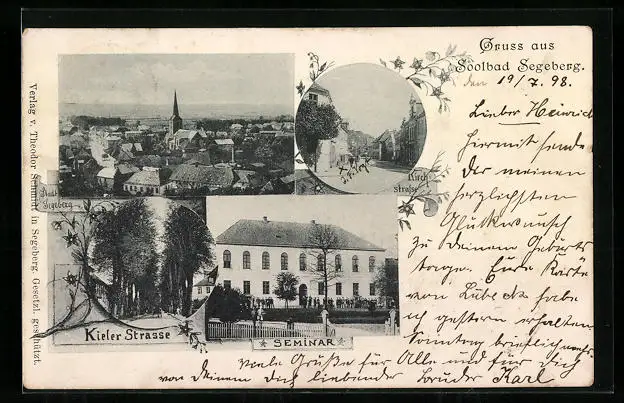 Gruss aus
Soolbad Segeberg.
den 19/7. 98.
Lieber Heinrich
Hiermit sende
dir meinen
herzlichsten
Glückwunsch
zu deinem Geburts
tage. Eure Karte
von Lübeck habe
ich gestern erhalten
Sonntag brieflich mehr.
Viele Grüße für Alle und für dich
von deinem dich liebender Bruder Karl
Verlag v. Theodor Schmitt in Segeberg. Gesetzl. geschützt.
Stadt
Segeberg
Kirch
strasse
Kieler Strasse
SEMINAR